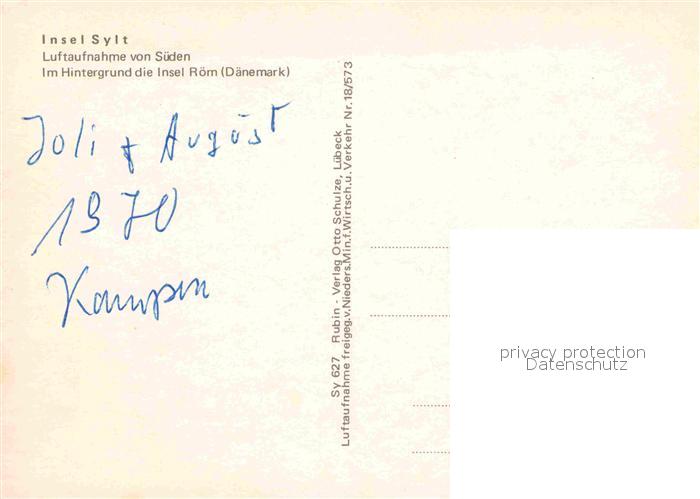 Insel Sylt
Luftaufnahme von Süden
Im Hintergrund die Insel Röm (Dänemark)
Joli + August
1970
Kampen
Sy 627 Rubin - Verlag Otto Schulze, Lübeck
Luftaufnahme freigeg.v.Nieders.Min.f.Wirtsch.u. Verkehr Nr.18/573
privacy protection
Datenschutz